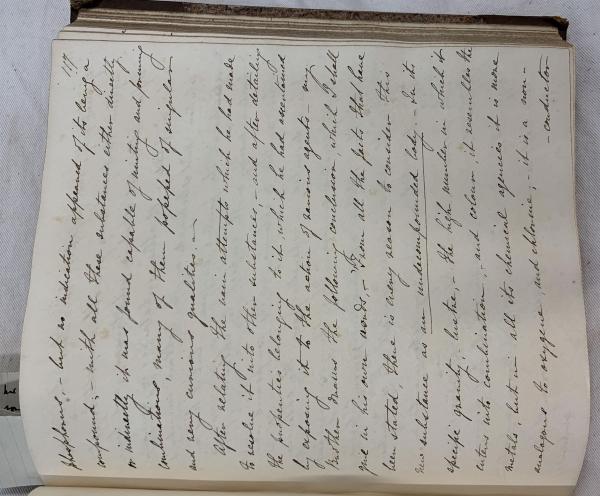 117
phosphorus, - but no indication appeared of its being a
compound; - with all these substances either directly
or indirectly it was found capable of uniting and forming
combinations, many of them possessed of singular
and very curious qualities -
After relating the vain attempts which he had made
to resolve it into other substances, - and after detailing
the properties belonging to it which he had ascertained
by exposing it to the action of various agents - my
Brother draws the following conclusion, which I shall
give in his own words, - "From all the facts that have
been stated, there is every reason to consider this
new substance as an undecompounded body - In its
specific gravity, lustre, - the high number in which it
enters into combination, - and colour, it resembles the
metals, but in all its chemical agencies it is more
analogous to oxygene, and chlorine; - it is a non-
-conductor